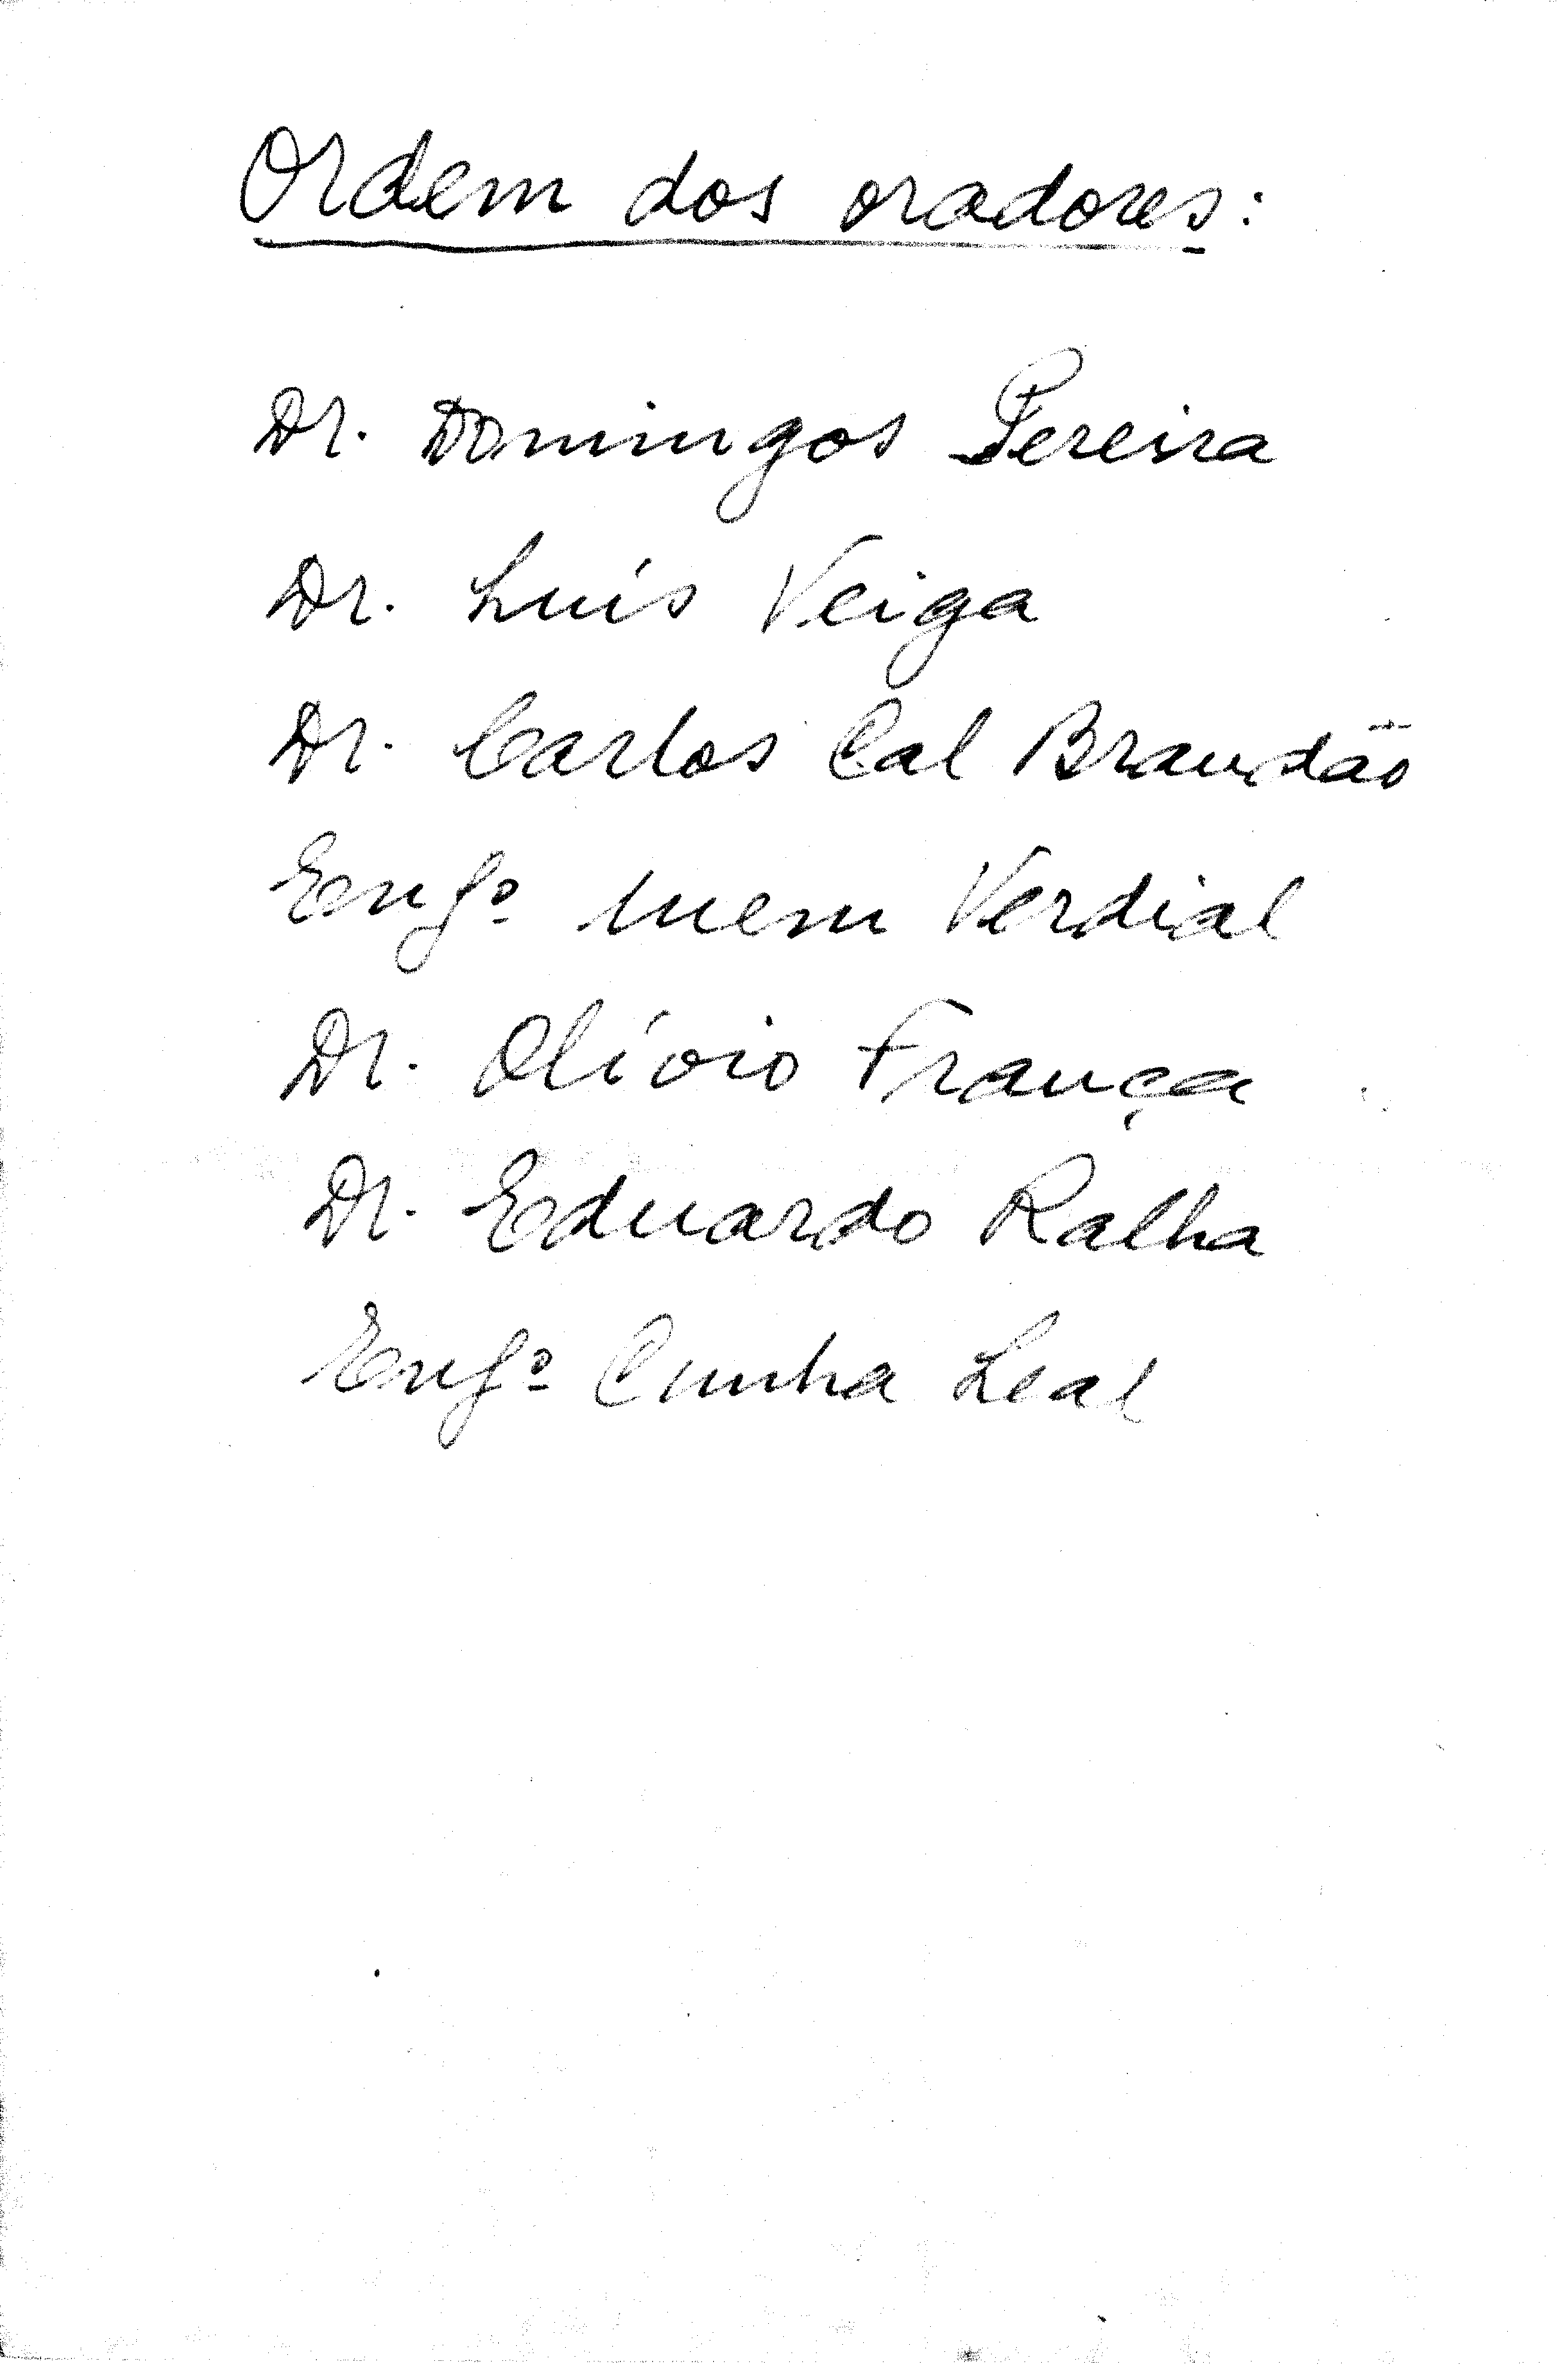 Ordem dos oradores:
Dr. Domingos Pereira
Dr. Luís Veiga
Dr. Carlos Cal Brandão
Engº Mem Verdial
Dr. Olívio França
Dr. Eduardo Ralha
Engº Cunha Leal